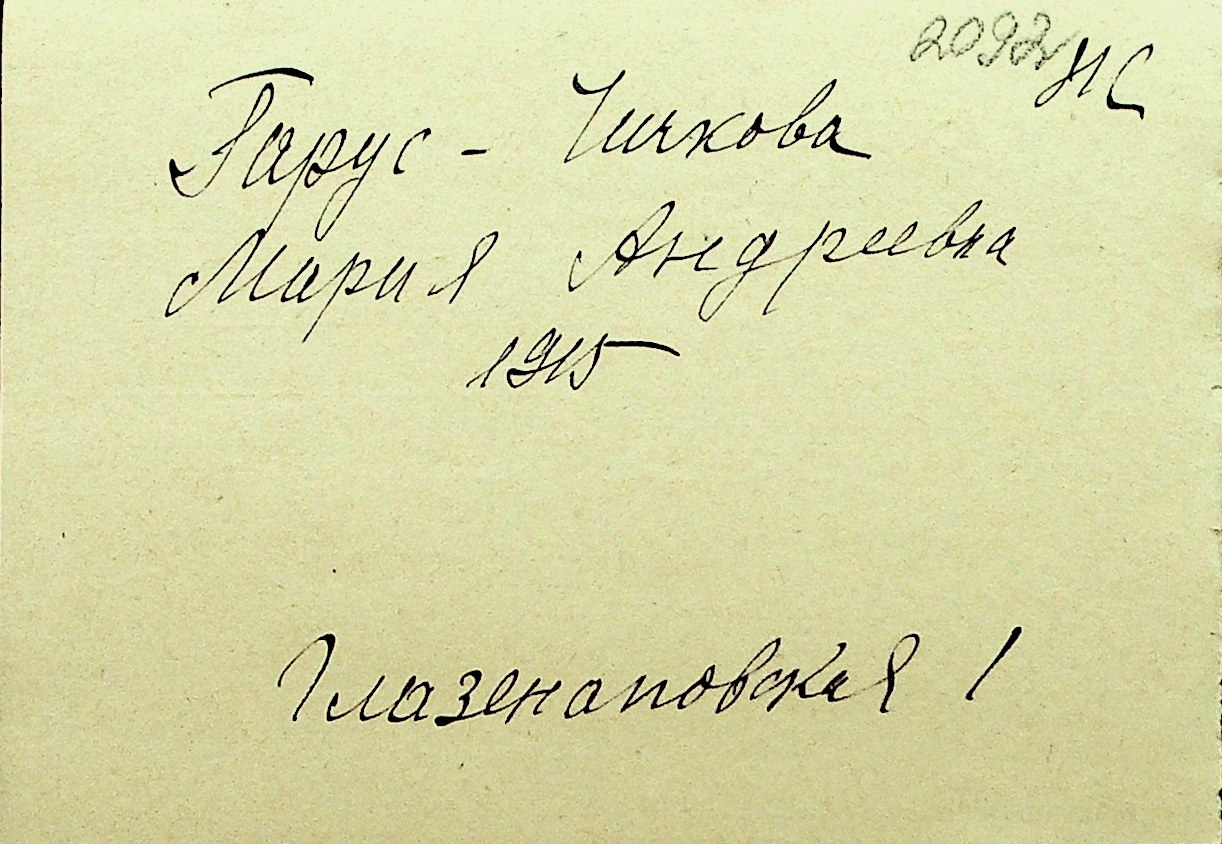 2092 НС
Гарус - Чичкова
Мария Андреевна
1915
Глазенаповская 1